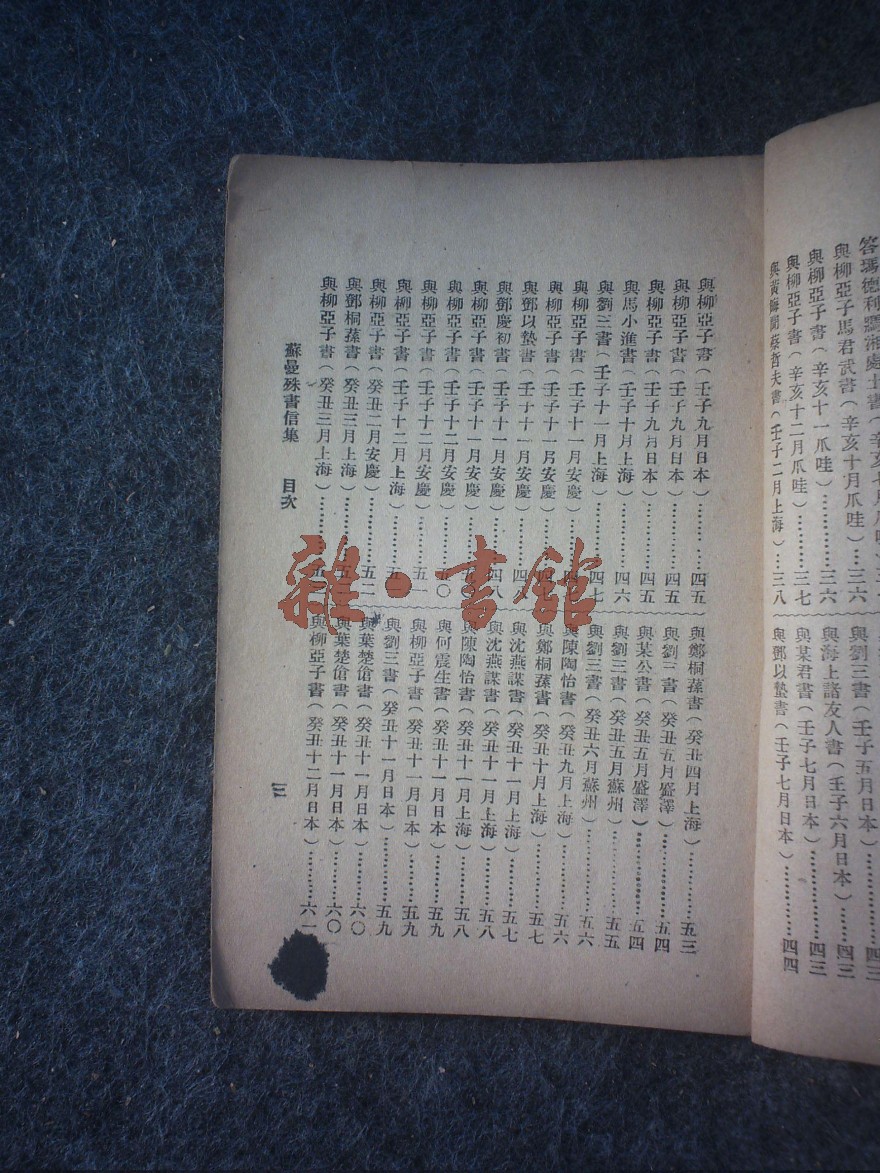 答瑪德利湘處士書(辛亥七月爪哇
與柳亞子馬君武書(辛亥十月爪哇)…三六
與柳亞子書(辛亥十一爪哇)………三六
與柳亞子書(辛亥十二月爪哇)………三七
與黃晦聞蔡哲夫書(壬子二月上海)…三八
與劉三書(壬子五月日本)…………四三
與海上諸友人書(壬子六月日本)……四三
與某君書(壬子七月日本)…………四三
與鄧以蟄書(壬子七月日本)…………四四
與柳亞子書(壬子九月日本)…………四五
與柳亞子書(壬子九月日本)…………四五
與柳亞子書(壬子九月日本)…………四五
與馬小進書(壬子十月上海)…………四六
與劉三書(壬子十一月上海)…………四七
與柳亞子書(壬子十一月安慶)………四
與柳亞子書(壬子十一月安慶)………四
與鄧以蟄書(壬子十一月安慶)………四八
與鄧慶初書(壬子十一月安慶)………四八
與柳亞子書(壬子十一月安慶)………五〇
與柳亞子書(壬子十二月安慶)………
與柳亞子書(壬子十二月安慶)………五一
與柳亞子書(壬子十二月上海)………五
與柳亞子書(癸丑二月安慶)…………五二
與鄧桐蓀書(癸丑三月上海)…………五
與柳亞子書(癸丑三月上海)…………五
與鄭桐蓀書(癸丑四月上海)…………五三
與劉三書(癸丑五月盛澤)…………五四
與某公書(癸丑五月盛澤)…………五四
與劉三書(癸丑五月蘇州)…………五五
與劉三書(癸丑六月蘇州)…………五六
與陳陶怡書(癸丑九月上海)…………五六
與鄭桐蓀書(癸丑十月上海)…………五七
與沈燕謀書(癸丑十一月上海)………五七
與沈燕謀書(癸丑十一月上海)………五八
與陳陶怡書(癸丑十一月上海)………五八
與何震生書(癸丑十一月日本)………五九
與柳亞子書(癸丑十一月日本)………五九
與劉三書(癸丑十一月日本)…………五九
與葉楚傖書(癸丑十一月日本)………六〇
與葉楚傖書(癸丑十一月日本)………六〇
與柳亞子書(癸丑十二月日本)………六一
蘇曼殊書信集 目次
三
雜·書館